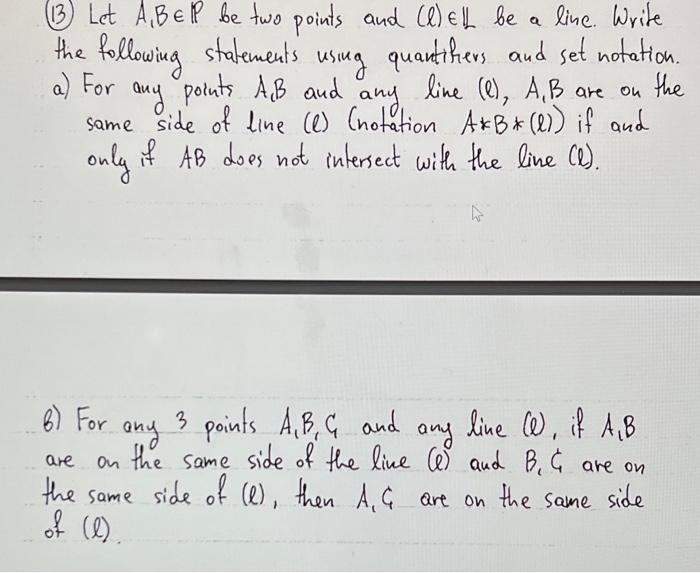 (13) Let A,B∈ℙ be two points and (l)∈𝕃 be a line. Write
the following statements using quantifiers and set notation.
a) For any points A,B and any line (l), A,B are on the
same side of line (l) (notation A*B*(l)) if and
only if AB does not intersect with the line (l).
b) For any 3 points A,B,C and any line (l), if A,B
are on the same side of the line (l) and B,C are on
the same side of (l), then A,C are on the same side
of (l).